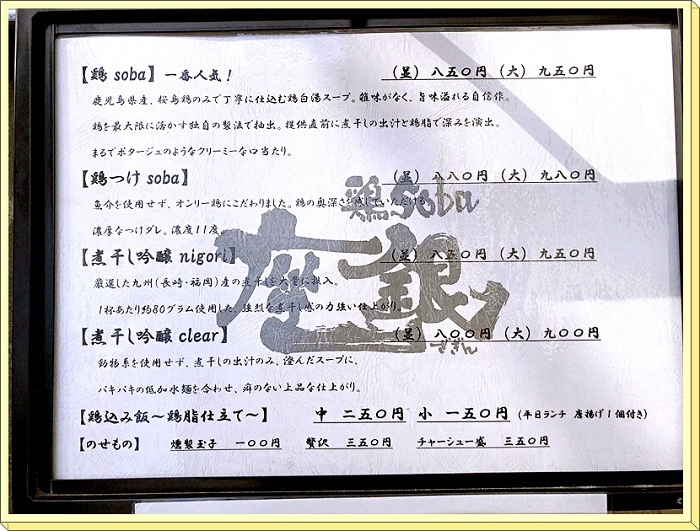 【鶏 soba】一番人気！ （並）八五〇円（大）九五〇円
鹿児島県産、桜島鶏のみで丁寧に仕込む鶏白湯スープ。雑味がなく、旨味溢れる自信作。
鶏を最大限に活かす独自の製法で抽出。提供直前に煮干しの出汁と鶏脂で深みを演出。
まるでポタージュのようなクリーミーな口当たり。
【鶏つけ soba】 （並）八八〇円（大）九八〇円
魚介を使用せず、オンリー鶏にこだわりました。鶏の奥深さを感じていただける、
濃厚なつけダレ。濃度11度。
【煮干し吟醸 nigori】 （並）八五〇円（大）九五〇円
厳選した九州（長崎・福岡）産の煮干しを大量に投入。
1杯あたり約80グラム使用した、強烈な煮干し感の力強い仕上がり。
【煮干し吟醸 clear】 （並）八〇〇円（大）九〇〇円
動物系を使用せず、煮干しの出汁のみ、澄んだスープに、
パキパキの低加水麺を合わせ、癖のない上品な仕上がり。
【鶏込み飯〜鶏脂仕立て〜】 中 二五〇円 小 一五〇円（平日ランチ 唐揚げ1個付き）
【のせもの】 燻製玉子 一〇〇円 贅沢 三五〇円 チャーシュー盛 三五〇円
鶏Soba
座銀
ざぎん